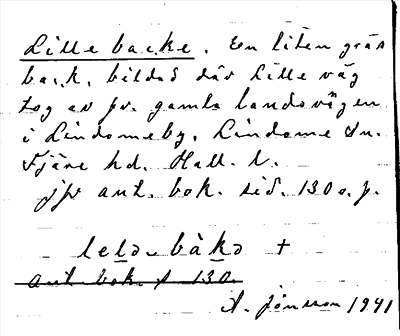 Lille backe. En liten gräs
back, bildad där Lille väg
tog av fr. gamla landsvägen
i Lindomeby, Lindome sn.
Fjäre hd. Hall. l.
jfr ant. bok. sid. 130 o. f.
lelə-bàkə +
ant. bok. s 130.
A. Jönsson 1941